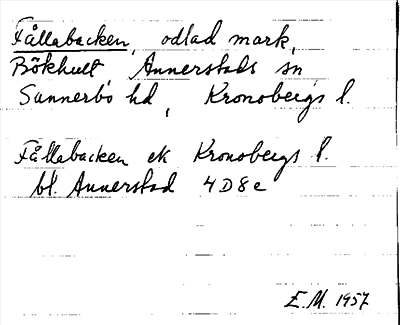 Fållabacken, odlad mark,
Bökhult Annerstads sn
Sunnerbo hd, Kronobergs l.
Fållabacken ek Kronobergs l.
bl. Annerstad 4D8e
E.M. 1957